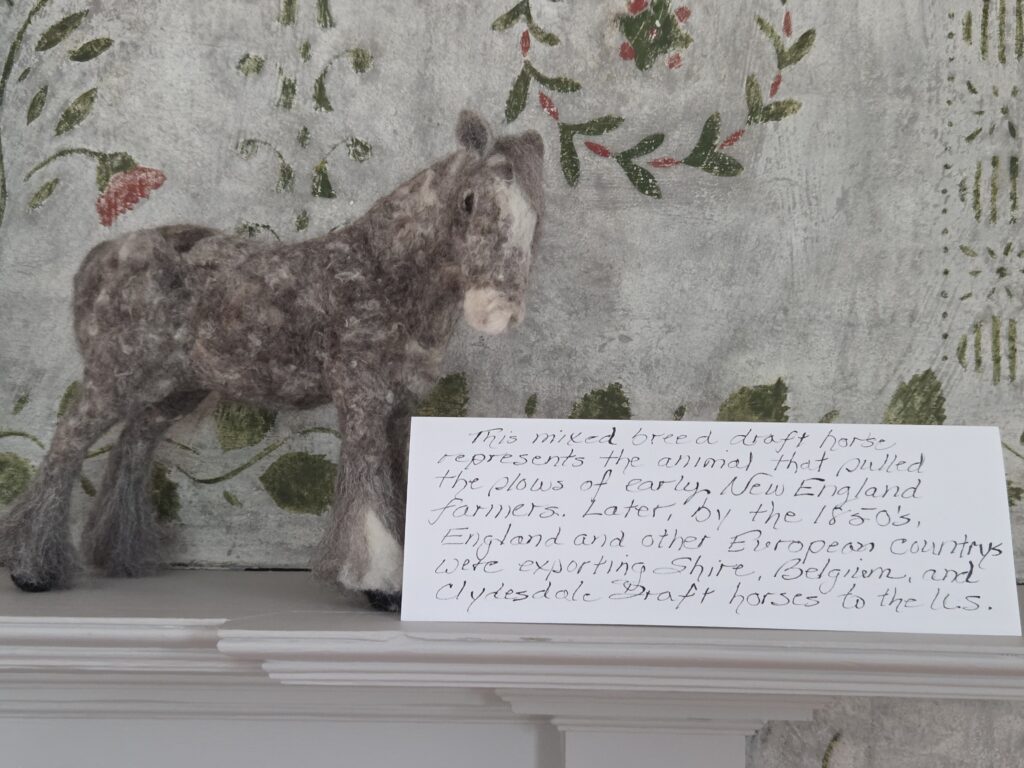 This mixed breed draft horse
represents the animal that pulled
the plows of early New England
farmers. Later, by the 1850's,
England and other European countrys
were exporting Shire, Belgium, and
Clydesdale Draft horses to the U.S.